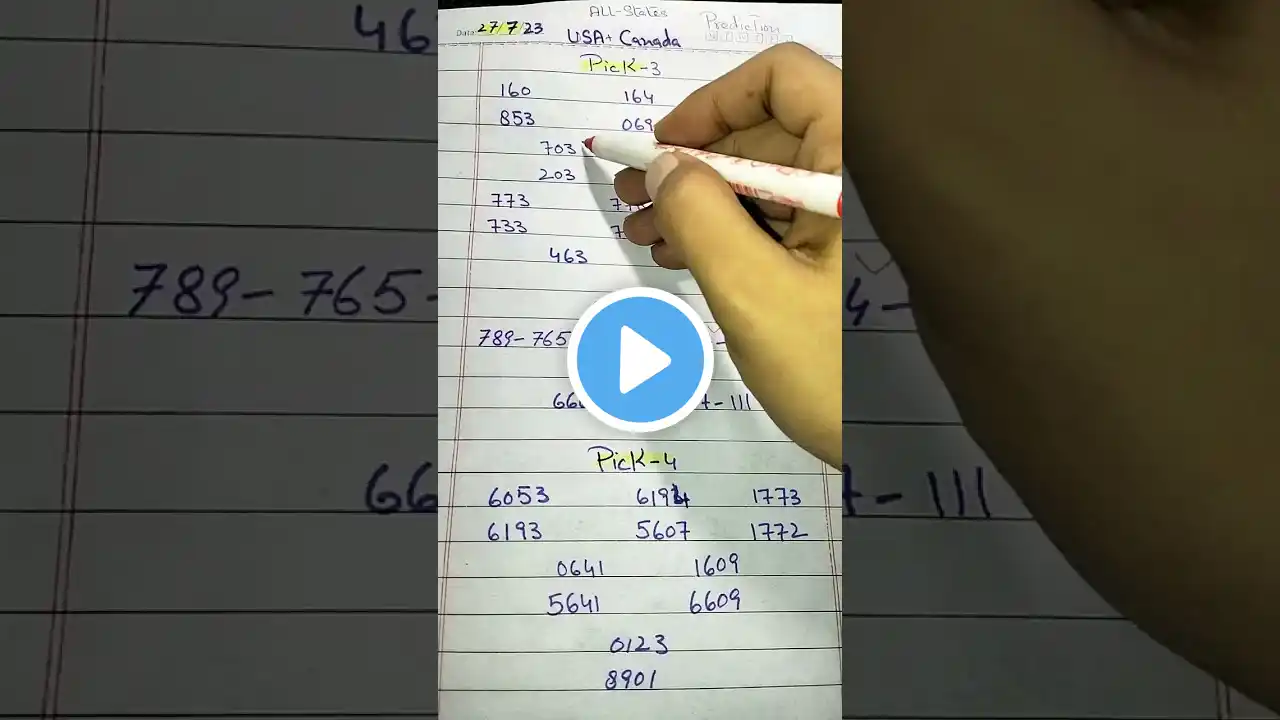 ALL-States
Date: 27/7/23 USA+ Canada Prediction
Pick-3
160 164
853 069
703
203
773
733
463
789-765
-111
Pick-4
6053 6194 1773
6193 5607 1772
0641 1609
5641 6609
0123
8901